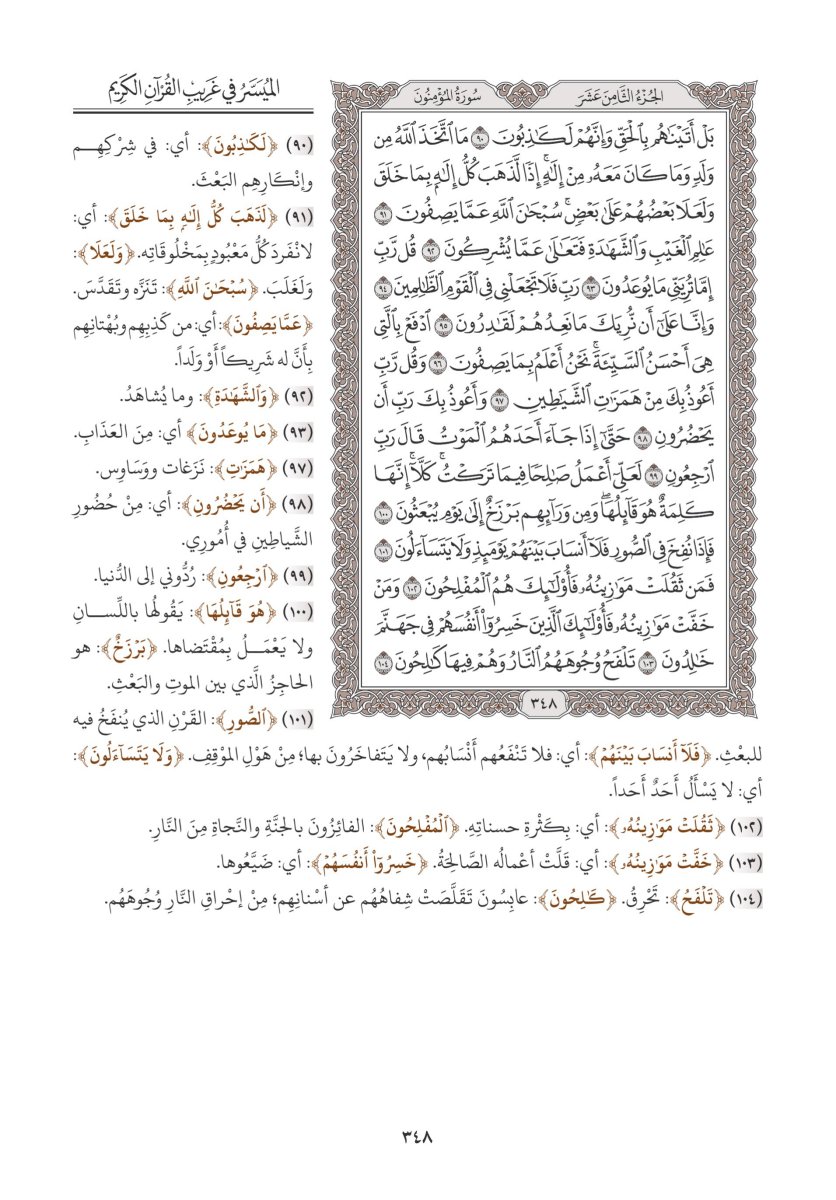 الميسر في غريب القرآن الكريم
الجزء الثامن عشر
سورة المؤمنون
بَلْ أَتَيْنَٰهُم بِٱلْحَقِّ وَإِنَّهُمْ لَكَٰذِبُونَ ٩٠ مَا ٱتَّخَذَ ٱللَّهُ مِن
وَلَدٍ وَمَا كَانَ مَعَهُۥ مِنْ إِلَٰهٍ ۚ إِذًا لَّذَهَبَ كُلُّ إِلَٰهٍۭ بِمَا خَلَقَ
وَلَعَلَا بَعْضُهُمْ عَلَىٰ بَعْضٍ ۚ سُبْحَٰنَ ٱللَّهِ عَمَّا يَصِفُونَ ٩١
عَٰلِمِ ٱلْغَيْبِ وَٱلشَّهَٰدَةِ فَتَعَٰلَىٰ عَمَّا يُشْرِكُونَ ٩٢ قُل رَّبِّ
إِمَّا تُرِيَنِّي مَا يُوعَدُونَ ٩٣ رَبِّ فَلَا تَجْعَلْنِي فِي ٱلْقَوْمِ ٱلظَّٰلِمِينَ ٩٤
وَإِنَّا عَلَىٰٓ أَن نُّرِيَكَ مَا نَعِدُهُمْ لَقَٰدِرُونَ ٩٥ ٱدْفَعْ بِٱلَّتِي
هِيَ أَحْسَنُ ٱلسَّيِّئَةَ ۚ نَحْنُ أَعْلَمُ بِمَا يَصِفُونَ ٩٦ وَقُل رَّبِّ
أَعُوذُ بِكَ مِنْ هَمَزَٰتِ ٱلشَّيَٰطِينِ ٩٧ وَأَعُوذُ بِكَ رَبِّ أَن
يَحْضُرُونِ ٩٨ حَتَّىٰٓ إِذَا جَآءَ أَحَدَهُمُ ٱلْمَوْتُ قَالَ رَبِّ
ٱرْجِعُونِ ٩٩ لَعَلِّيٓ أَعْمَلُ صَٰلِحًا فِيمَا تَرَكْتُ ۚ كَلَّآ ۚ إِنَّهَا
كَلِمَةٌ هُوَ قَآئِلُهَا ۖ وَمِن وَرَآئِهِم بَرْزَخٌ إِلَىٰ يَوْمِ يُبْعَثُونَ ١٠٠
فَإِذَا نُفِخَ فِي ٱلصُّورِ فَلَآ أَنسَابَ بَيْنَهُمْ يَوْمَئِذٍ وَلَا يَتَسَآءَلُونَ ١٠١
فَمَن ثَقُلَتْ مَوَٰزِينُهُۥ فَأُو۟لَٰٓئِكَ هُمُ ٱلْمُفْلِحُونَ ١٠٢ وَمَنْ
خَفَّتْ مَوَٰزِينُهُۥ فَأُو۟لَٰٓئِكَ ٱلَّذِينَ خَسِرُوٓا۟ أَنفُسَهُمْ فِي جَهَنَّمَ
خَٰلِدُونَ ١٠٣ تَلْفَحُ وُجُوهَهُمُ ٱلنَّارُ وَهُمْ فِيهَا كَٰلِحُونَ ١٠٤
٣٤٨
(٩٠) ﴿لَكَٰذِبُونَ﴾: أي: في شِرْكِهِم
وإنْكَارِهِم البَعْثَ.
(٩١) ﴿لَذَهَبَ كُلُّ إِلَٰهٍۭ بِمَا خَلَقَ﴾: أي:
لانْفردَ كُلُّ مَعْبُودٍ بِمَخْلُوقَاتِه. ﴿وَلَعَلَا﴾:
وَلَغَلَبَ. ﴿سُبْحَٰنَ ٱللَّهِ﴾: تَنَزَّه وتَقَدَّسَ.
﴿عَمَّا يَصِفُونَ﴾: أي: من كَذِبِهِم وبُهْتانِهِم
بِأَنَّ له شَرِيكاً أَوْ وَلَداً.
(٩٢) ﴿وَٱلشَّهَٰدَةِ﴾: وما يُشاهَدُ.
(٩٣) ﴿مَا يُوعَدُونَ﴾ أي: مِنَ العَذَابِ.
(٩٧) ﴿هَمَزَٰتِ﴾: نَزَغات ووَسَاوِس.
(٩٨) ﴿أَن يَحْضُرُونِ﴾: أي: مِنْ حُضُورِ
الشَّياطِينِ في أُمُورِي.
(٩٩) ﴿ٱرْجِعُونِ﴾: رُدُّوني إلى الدُّنيا.
(١٠٠) ﴿هُوَ قَآئِلُهَا﴾: يَقُولُها باللِّسانِ
ولا يَعْمَلُ بِمُقْتَضاها. ﴿بَرْزَخٌ﴾: هو
الحاجِزُ الَّذي بين الموتِ والبَعْثِ.
(١٠١) ﴿ٱلصُّورِ﴾: القَرْنِ الذي يُنفَخُ فيه
للبعْثِ. ﴿فَلَآ أَنسَابَ بَيْنَهُمْ﴾: أي: فلا تَنْفَعُهم أَنْسَابُهم، ولا يَتَفاخَرُونَ بها؛ مِنْ هَوْلِ الموْقِفِ. ﴿وَلَا يَتَسَآءَلُونَ﴾:
أي: لا يَسْأَلُ أَحَدٌ أَحَداً.
(١٠٢) ﴿ثَقُلَتْ مَوَٰزِينُهُۥ﴾: أي: بِكَثْرةِ حسناتِهِ. ﴿ٱلْمُفْلِحُونَ﴾: الفائِزُونَ بالجنَّةِ والنَّجاةِ مِنَ النَّارِ.
(١٠٣) ﴿خَفَّتْ مَوَٰزِينُهُۥ﴾: أي: قَلَّتْ أعْمالُه الصَّالِحَةُ. ﴿خَسِرُوٓا۟ أَنفُسَهُمْ﴾: أي: ضَيَّعُوها.
(١٠٤) ﴿تَلْفَحُ﴾: تَحْرِقُ. ﴿كَٰلِحُونَ﴾: عابِسُونَ تَقَلَّصَتْ شِفاهُهُم عن أسْنانِهِم؛ مِنْ إحْراقِ النَّارِ وُجُوهَهُم.
٣٤٨